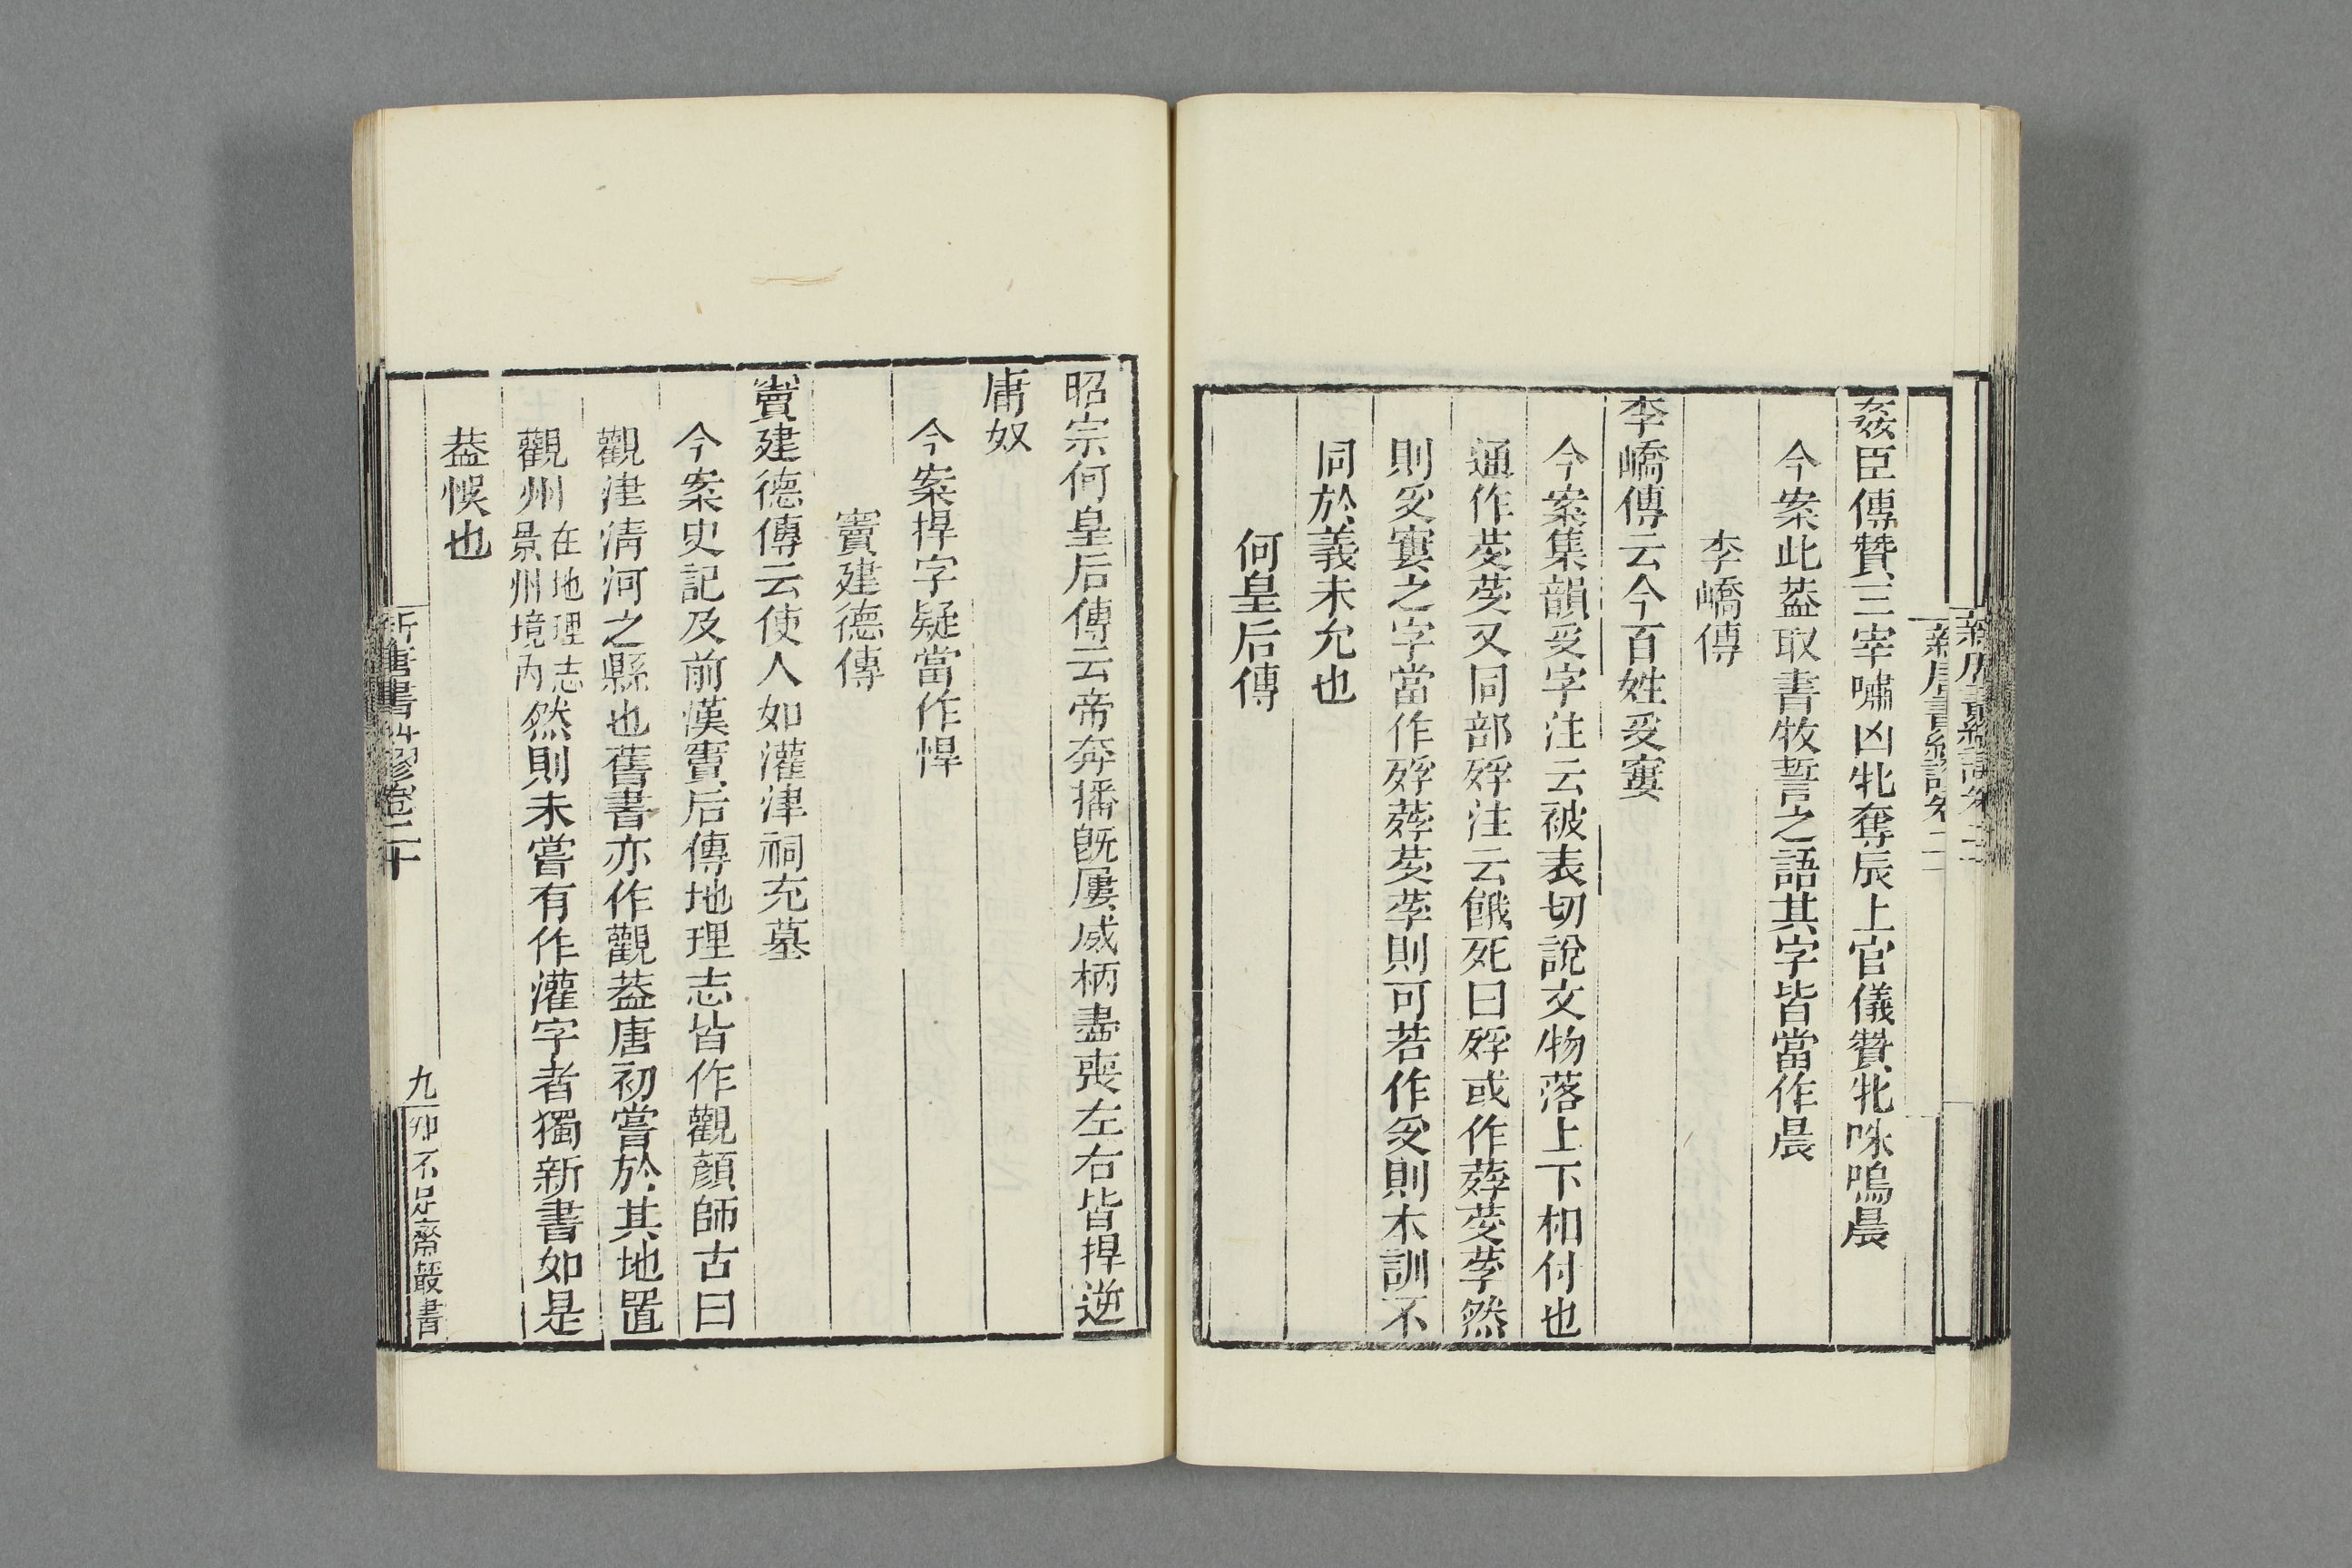 姦臣傳贊三宰嘯凶牝奪辰上官儀贊牝咮鳴晨
今案此葢取書牧誓之語其字皆當作晨
李嶠傳
李嶠傳云今百姓𠬪窶
今案集韻𠬪字注云被表切說文物落上下相付也
通作荽芰又同部殍注云餓死曰殍或作蔉芰莩然
則𠬪窶之字當作殍芰莩則可若作𠬪則本訓不
同於義未允也
何皇后傳
昭宗何皇后傳云帝奔播旣屢威柄盡喪左右皆捍逆
庸奴
今案捍字疑當作悍
竇建德傳
竇建德傳云使人如灌津祠充墓
今案史記及前漢竇后傳地理志皆作觀顏師古曰
觀津淸河之縣也舊書亦作觀葢唐初嘗於其地置
觀州在地理志景州境內然則未嘗有作灌字者獨新書如是
葢悞也
新唐書糾謬卷二十
九
知不足齋叢書